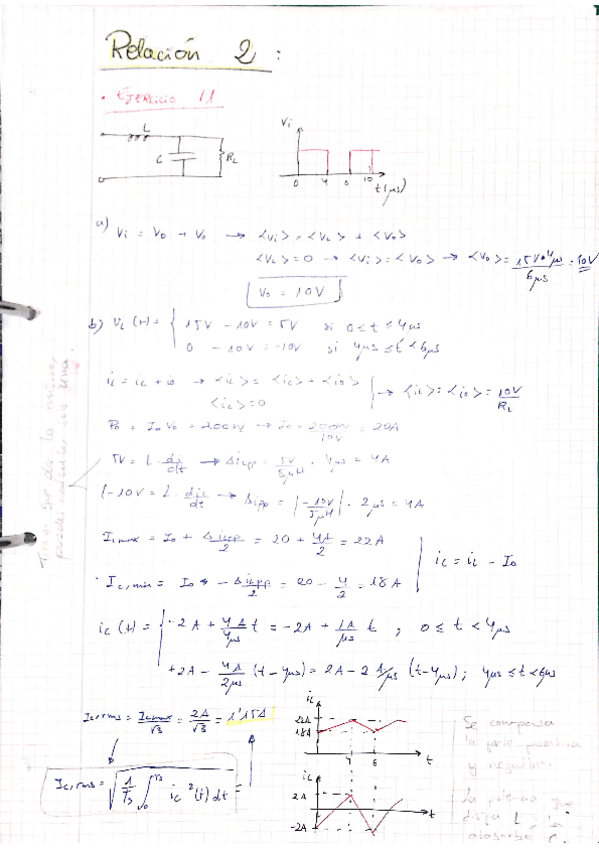 Relación 2 :
• Ejercicio 11
L
C
RL
Vi
0 4 6 10 t(μs)
a) Vi = VL + Vo → <Vi> = <VL> + <Vo>
<VL> = 0 → <Vi> = <Vo> → <Vo> = 15V·4μs / 6μs = 10V
Vo = 10V
b) VL(t) = { 15V - 10V = 5V si 0 ≤ t ≤ 4μs
0 - 10V = -10V si 4μs ≤ t < 6μs
iL = ic + io → <iL> = <ic> + <io>
<ic> = 0
→ <iL> = <io> = 10V / RL
Po = Io Vo = 200W → Io = 200W / 10V = 20A
5V = L · diL/dt → ΔiLpp = 5V/5μH · 4μs = 4A
|-10V = L · diL/dt → ΔiLpp = |-10V/5μH| · 2μs = 4A
IL,max = Io + ΔiLpp/2 = 20 + 4A/2 = 22A
ic = iL - Io
• IL,min = Io - ΔiLpp/2 = 20 - 4/2 = 18A
ic(t) = { -2A + 4A/4μs t = -2A + 1A/μs t ; 0 ≤ t < 4μs
+2A - 4A/2μs (t-4μs) = 2A - 2 A/μs (t-4μs) ; 4μs ≤ t < 6μs
Ic,rms = Ic,max/√3 = 2A/√3 = 1'15A
Ic,rms = √(1/Ts ∫0^Ts ic²(t) dt) =
iL
22A
18A
4 6 t
ic
2A
-2A
t
Se compensa
la parte positiva
y negativa.
La potencia que
disipa L = la
absorbe C.
Tienen que dar lo mismo
puedes calcular solo una.